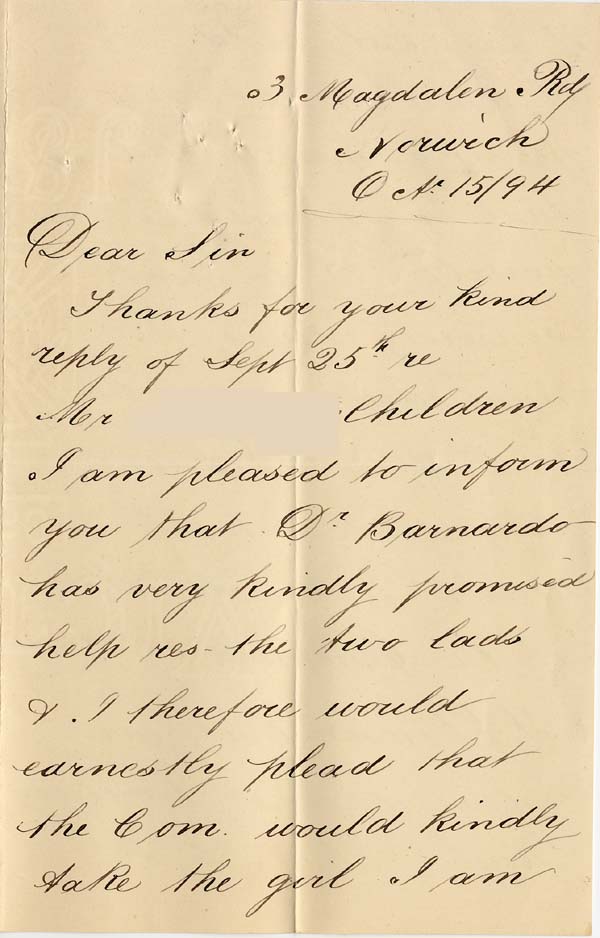 3 Magdalen Rd
Norwich
Oct 15/94
Dear Sir
Thanks for your kind
reply of Sept 25th re
Mr Children
I am pleased to inform
you that Dr Barnardo
has very kindly promised
help res- the two lads
& . I therefore would
earnestly plead that
the Com. would kindly
take the girl I am